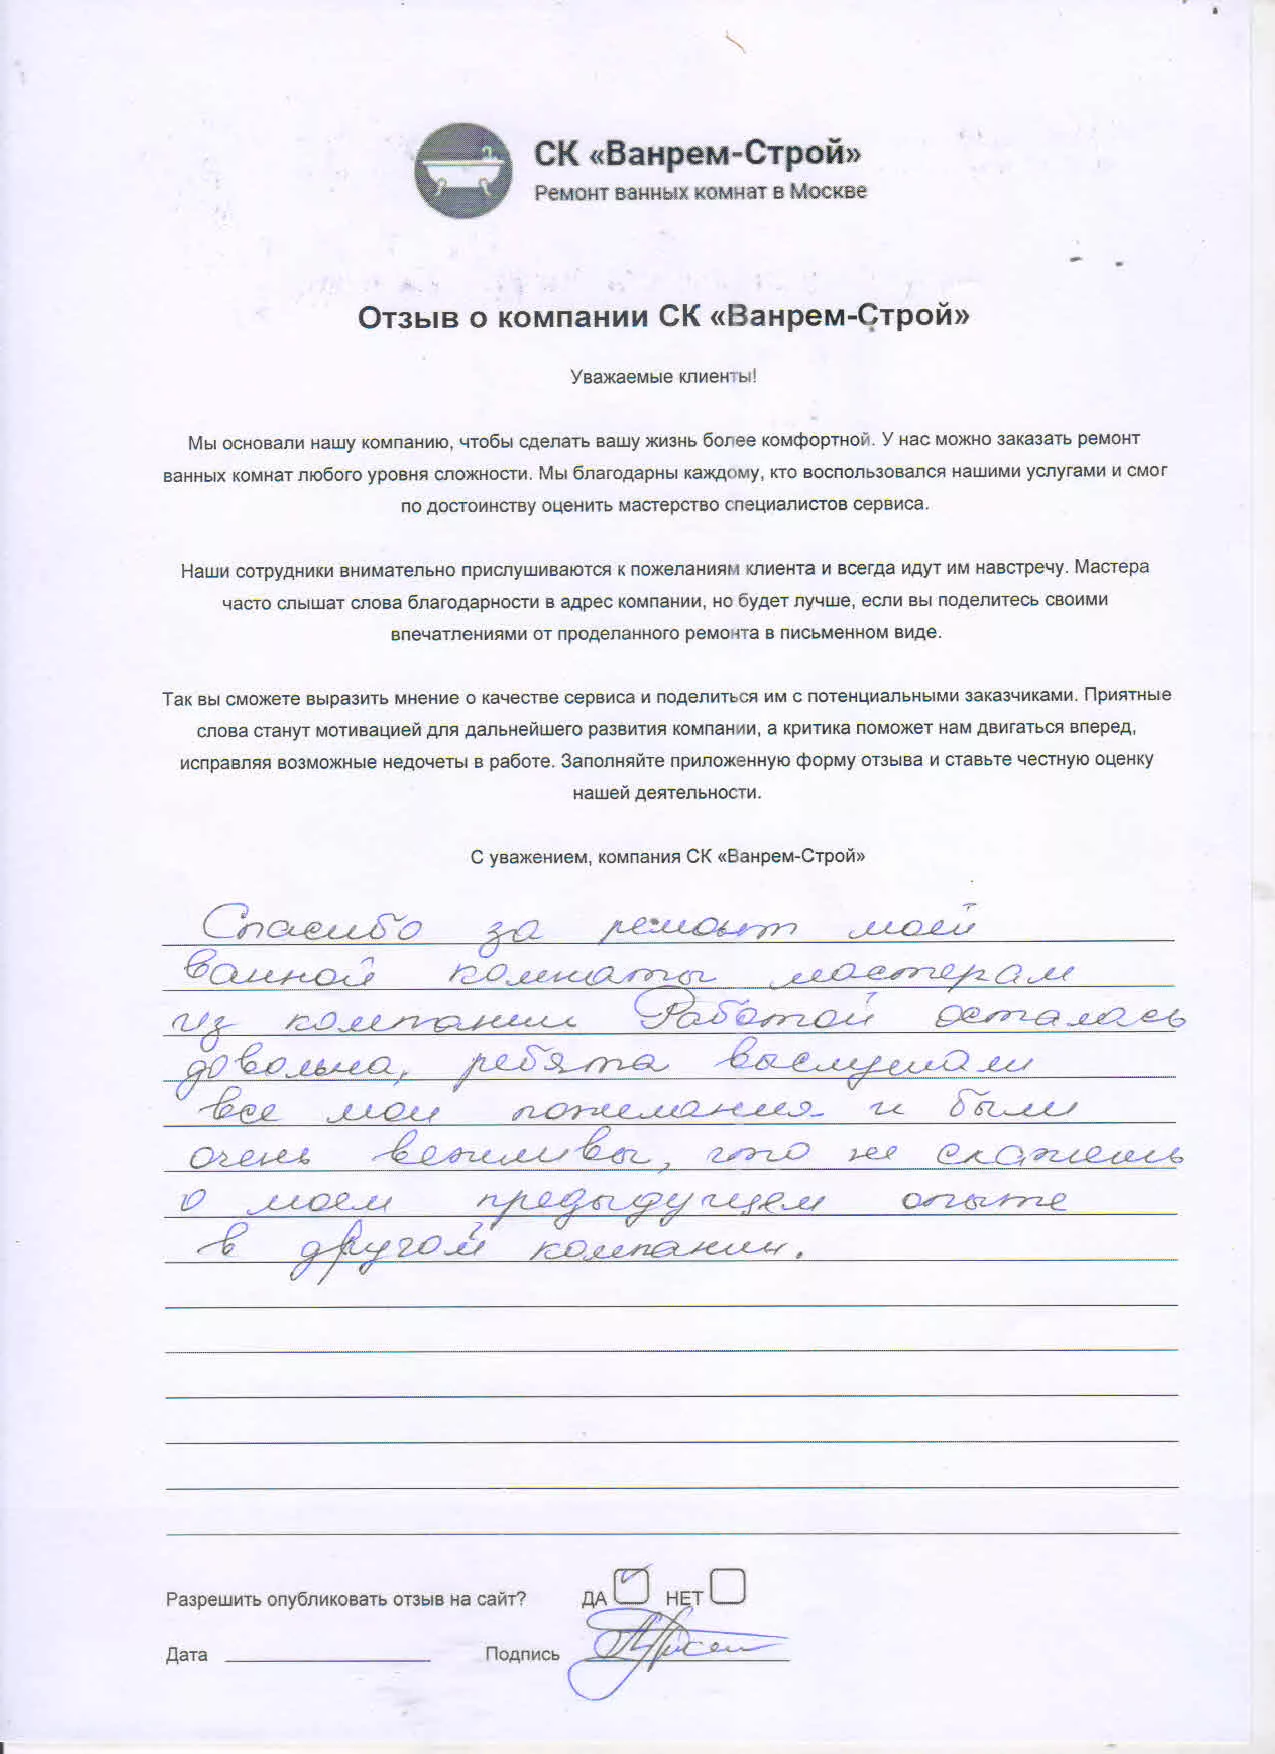 СК «Ванрем-Строй»
Ремонт ванных комнат в Москве
Отзыв о компании СК «Ванрем-Строй»
Уважаемые клиенты!
Мы основали нашу компанию, чтобы сделать вашу жизнь более комфортной. У нас можно заказать ремонт
ванных комнат любого уровня сложности. Мы благодарны каждому, кто воспользовался нашими услугами и смог
по достоинству оценить мастерство специалистов сервиса.
Наши сотрудники внимательно прислушиваются к пожеланиям клиента и всегда идут им навстречу. Мастера
часто слышат слова благодарности в адрес компании, но будет лучше, если вы поделитесь своими
впечатлениями от проделанного ремонта в письменном виде.
Так вы сможете выразить мнение о качестве сервиса и поделиться им с потенциальными заказчиками. Приятные
слова станут мотивацией для дальнейшего развития компании, а критика поможет нам двигаться вперед,
исправляя возможные недочеты в работе. Заполняйте приложенную форму отзыва и ставьте честную оценку
нашей деятельности.
С уважением, компания СК «Ванрем-Строй»
Спасибо за ремонт моей
ванной комнаты мастерам
из компании Работой осталась
довольна, ребята выслушали
все мои пожелания и были
очень вежливы, что не скажешь
о моем предыдущем опыте
в другой компании.
Разрешить опубликовать отзыв на сайт? ДА НЕТ
Дата Подпись